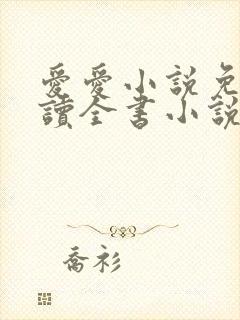 愛愛小說免
讀全書小說
喬衫